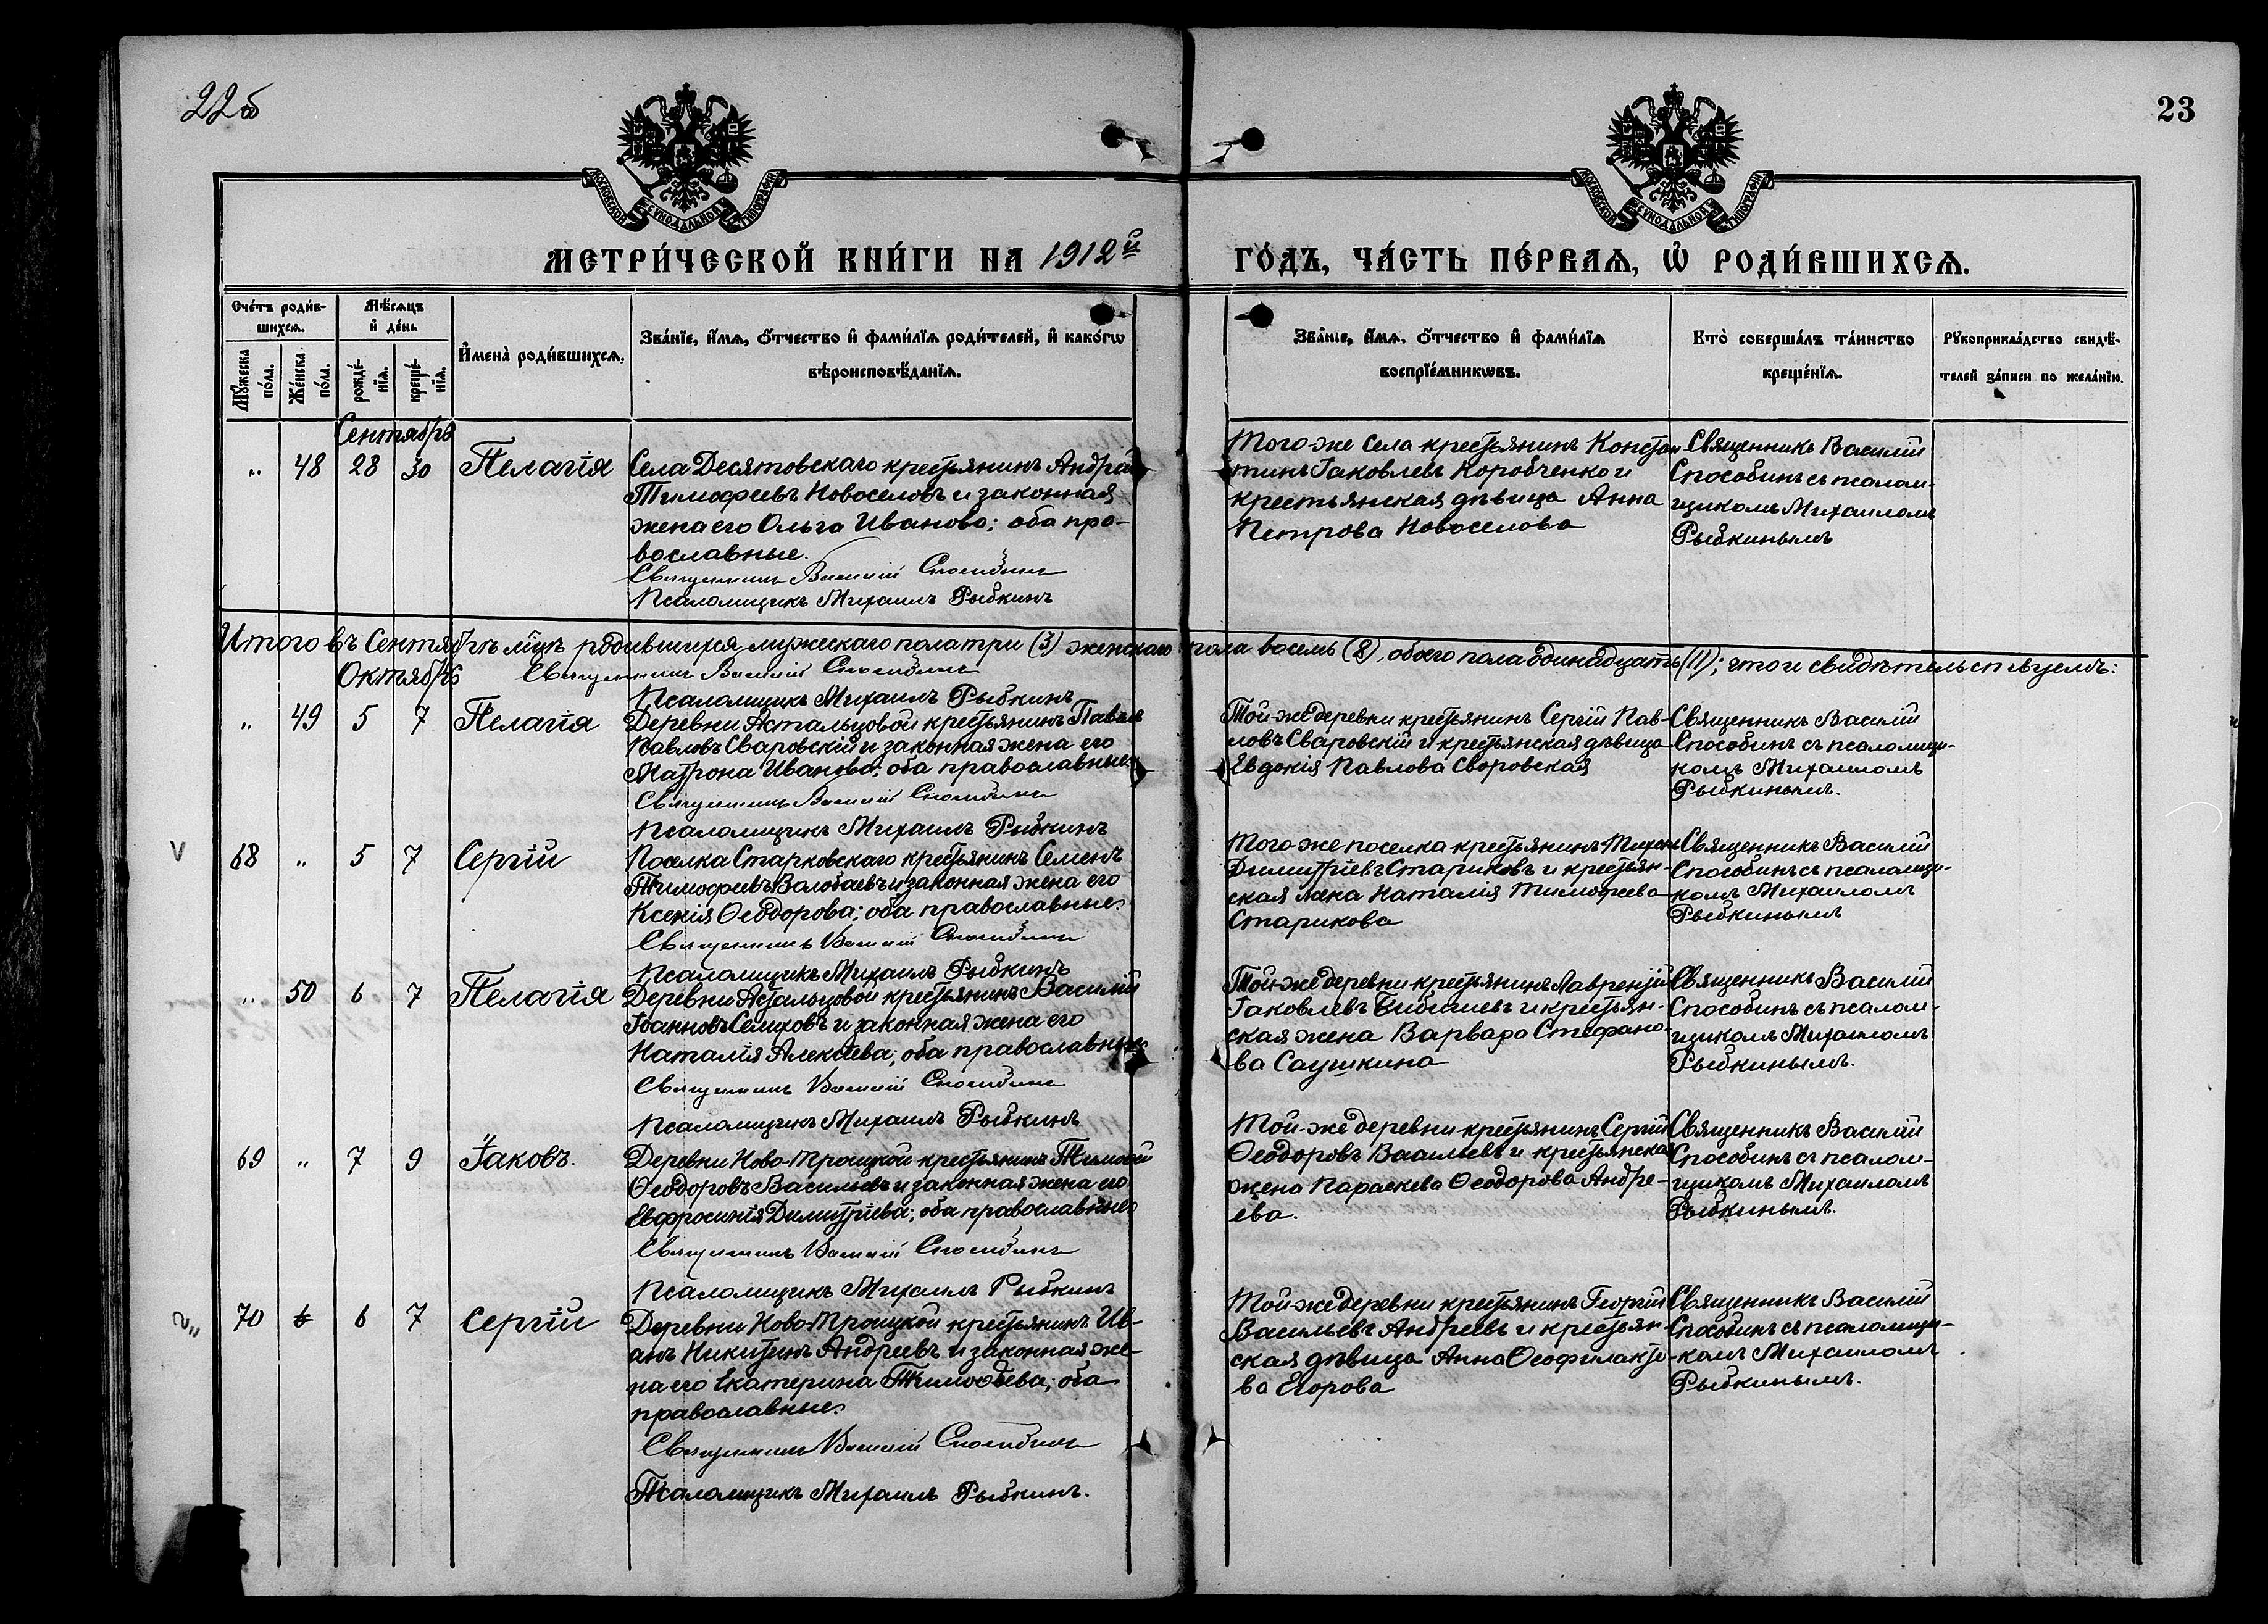 22об
23
МОСКОВСКОЙ СѴНОДАЛЬНОЙ ТИПОГРАФІИ
МОСКОВСКОЙ СѴНОДАЛЬНОЙ ТИПОГРАФІИ
МЕТРИ́ЧЕСКОЙ КНИ́ГИ НА 1912й
ГО́ДЪ, ЧА́СТЬ ПЕ́РВАѦ, Ѡ҆ РОДИ́ВШИХСѦ.
Сче́тъ роди́в-
шихсѧ.
Мꙋ́жеска по́ла.
Же́нска по́ла.
Мѣ́сѧцъ
и҆ де́нь
рожде́-
нїѧ.
креще́-
нїѧ.
И҆мена̀ роди́вшихсѧ.
Зва́нїе, и҆́мѧ, ѻ҆́тчество и҆ фами́лїѧ роди́телей, и҆ како́гѡ
вѣроисповѣ́данїѧ.
Зва́нїе, и҆́мѧ, ѻ҆́тчество и҆ фами́лїѧ
воспрїе́мникѡвъ.
Кто̀ соверша́лъ та́инство
креще́нїѧ.
Рꙋкоприкла́дство свидѣ́-
телей за́писи по жела́нїю.
Сентябрь
„ 48 28 30 Пелагія
Села Десятовскаго крестьянинъ Андрей
Тимофеевъ Новоселовъ и законная
жена его Ольга Иванова; оба пра-
вославные.
Священникъ Василій Способинъ
Псаломщикъ Михаилъ Рыбкинъ
Того же села крестьянинъ Констан
тинъ Іаковлевъ Коробченко и
крестьянская дѣвица Анна
Петрова Новоселова
Священникъ Василій
Способинъ съ псалом-
щикомъ Михаиломъ
Рыбкинымъ
Итого въ Сентябрѣ м‑цѣ родившихся мужескаго пола три (3) женскаго пола восемь (8), обоего пола одинадцать (11); что и свидѣтельствуемъ:
Священникъ Василій Способинъ
Псаломщикъ Михаилъ Рыбкинъ
Октябрь
„ 49 5 7 Пелагія
Деревни Астальцовой крестьянинъ Павелъ
Павловъ Сваровскій и законная жена его
Матрона Иванова; оба православные.
Священникъ Василій Способинъ
Псаломщикъ Михаилъ Рыбкинъ
Той-же деревни крестьянинъ Сергій Пав-
ловъ Сваровскій и крестьянская дѣвица
Евдокія Павлова Своровская
Священникъ Василій
Способинъ съ псаломщи-
комъ Михаиломъ
Рыбкинымъ.
V 68 „ 5 7 Сергій
Поселка Старковскаго крестьянинъ Семенъ
Тимофеевъ Валобаевъ и законная жена его
Ксенія Ѳеодорова; оба православные.
Священникъ Василій Способинъ
Псаломщикъ Михаилъ Рыбкинъ
Того же поселка крестьянинъ Тихонъ
Димитріевъ Стариковъ и крестьян-
ская жена Наталія Тимофеева
Старикова
Священникъ Василій
Способинъ съ псаломщи-
комъ Михаиломъ
Рыбкинымъ
„ 50 6 7 Пелагія
Деревни Астальцовой крестьянинъ Василій
Іоанновъ Селиховъ и законная жена его
Наталія Алексѣева; оба православные.
Священникъ Василій Способинъ
Псаломщикъ Михаилъ Рыбкинъ
Той-же деревни крестьянинъ Лаврентій
Іаковлевъ Бибишевъ и крестьян-
ская жена Варвара Стефано-
ва Саушкина
Священникъ Василій
Способинъ съ псалом-
щикомъ Михаиломъ
Рыбкинымъ.
69 „ 7 9 Іаковъ.
Деревни Ново-Троицкой крестьянинъ Тимофей
Ѳеодоровъ Васильевъ и законная жена его
Евфросинія Димитріева; оба православные
Священникъ Василій Способинъ
Псаломщикъ Михаилъ Рыбкинъ
Той-же деревни крестьянинъ Сергій
Ѳеодоровъ Васильевъ и крестьянская
жена Параскева Ѳеодорова Андре-
ева.
Священникъ Василій
Способинъ съ псалом-
щикомъ Михаиломъ
Рыбкинымъ.
70 6 7 Сергій
Деревни Ново-Троицкой крестьянинъ Ив-
анъ Никитинъ Андреевъ и законная же-
на его Екатерина Тимофѣева; оба
православные.
Священникъ Василій Способинъ
Псаломщикъ Михаилъ Рыбкинъ.
Той-же деревни крестьянинъ Георгій
Васильевъ Андреевъ и крестьян-
ская дѣвица Анна Ѳеофилакто-
ва Егорова
Священникъ Василій
Способинъ съ псаломщи-
комъ Михаиломъ
Рыбкинымъ.